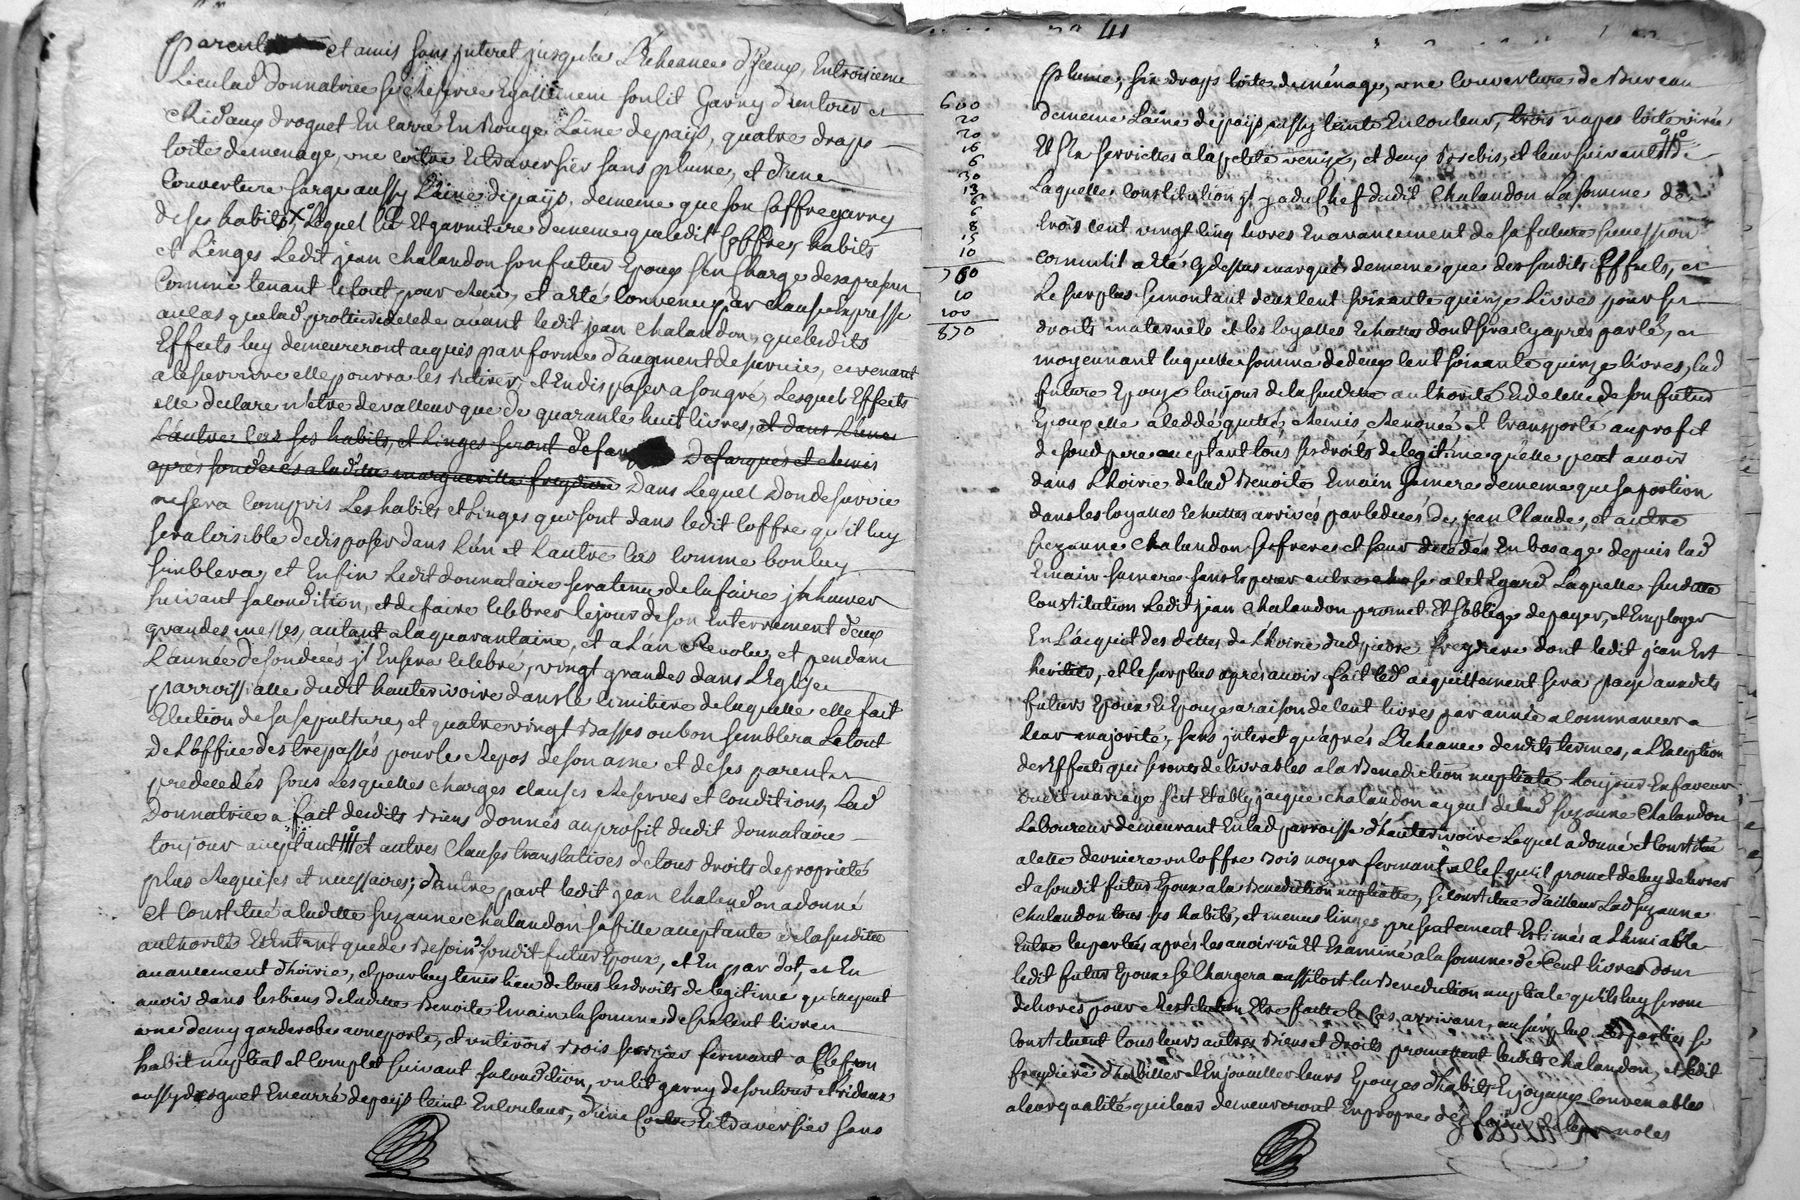 parent et amis sans interet jusqu'a L'Echeance d'Iceux, En troisieme
Lieu lad donnatrice se Reserve Egallement son lit Garny d'entour et
Rid'aux droguet En carré En Rouge Laine de pays, quatre draps
toile de menage, une coitre Et traversier sans plume, et d'une
Couverture sarge aussy Laine de pays, de meme que son Coffre garny
de ses habits, Lequel lit Et garniture de meme que ledit Coffre, habits
et Linges Ledit jean chalandon son futur Epoux s'en Charge des a present
Comme tenant le tout pour Reçu, et a été Convenu par clause Expresse
au cas que lad predecede avant ledit jean chalandon, que lesdits
Effects luy demeureront acquis par forme d'augment de survie, et venant
a le survivre elle pourra les Retirer, et En disposer a son gré, Lesquels Effects
elle declare n'etre de valleur que de quarante huit livres, et dans L'un et
L'autre Cas ses habits, et Linges seront de farques et Remis
après son deces a ladite margueritte freydiere Dans Lequel Don de survie
ne sera Compris Les habits et Linges qui sont dans ledit Coffre qu'il luy
sera loisible de disposer dans L'un et L'autre Cas Comme bon luy
semblera, et Enfin Ledit donnataire sera tenu de la faire inhumer
suivant sa condition, et de faire celebrer le jour de son Enterrement deux
grandes messes, autant a la quarantaine, et a L'an Revolu, et pendant
L'année de son deces il En sera celebré, vingt grandes dans L'Eglise
parroissialle dudit hauterivoire dans le cimitiere de laquelle elle fait
Election de sa sepulture, et quatre vingt Basses ou bon semblera Le tout
de L'office des trepassés pour le Repos de son ame et de ses parents
predecedés sous Lesquelles charges clauses Reserves et Conditions, Lad
Donnatrice a fait desdits Biens donnés au profit dudit donnataire
toujour acceptant et autres Clauses translatives de tous droits de proprieté
plus Requises et necessaires; d'autre part ledit jean Chalandon a donné
et Constitué a ladite suzanne chalandon sa fille acceptante de la susditte
authorité Et En tant que de Besoin sondit futur Epoux, et En par dot, et En
avancement d'hoirie, et pour luy tenir lieu de tous les droits de legitime qu'elle peut
avoir dans les biens de ladite Benoite Emain la somme de six cent livres
une demy garderobe a une porte, et un tirois Bois serizier fermant a Clef, son
habit nuptial et Complet suivant sa condition, un lit garny de son tour et rideaux
aussy droguet En carré de pays teint En couleur, d'une Coitre Et traversier sans
41
plume, six draps toile de ménage, une Couverture de Bureau
600
de meme Laine de pays aussy teinte En couleur, trois napes toile virée
20
20
Et six serviettes a la petite venise, et deux Brebis, et leur suivant
16
6
Laquelle Constitution il y a du Chef dudit Chalandon La somme de
30
13
6
trois cent vingt cinq livres En avancement de sa future succession
6
8
15
comme il a été Cy dessus marqué de meme que des susdits Effects, et
10
760
Le surplus se montant deux cent soixante quinze Livres pour ses
10
100
droits maternels et les loyalles Echuttes dont sera cy apres parlé, et
870
moyennant laquelle somme de deux cent soixante quinze livres, lad
future Epouze toujours de la susditte authorité Et de celle de son futur
Epoux elle a cedé quitté, Remis, Renoncé et transporté au profit
de sondit pere acceptant tous ses droits de legitime qu'elle peut avoir
dans L'hoirie de lad Benoite Emain sa mere de meme que sa portion
dans les loyalles Echuttes arrivés par le deces de jean Claude, et autre
suzanne chalandon ses frere et sœur decedés En bas age depuis lad
Emain sa mere sans Esperer autre chose a cet Egard Laquelle susditte
Constitution Ledit jean chalandon promet Et s'oblige de payer, et Employer
En L'acquit des dettes de L'hoirie dud pierre freydiere dont ledit jean Est
heritier, et le surplus après avoir fait led acquittement sera payé auxdits
futurs Epoux Et Epouze a raison de cent livres par année a commancer a
leur majorité, sans interet qu'après L'Echeance desdits termes, a L'Exception
des Effects qui seront delivrables a la Benediction nuptialle toujour En faveur
dudit mariage s'est Etably jacque chalandon ayeul de lad suzanne Chalandon
Laboureur demeurant En lad parroisse d'hauterivoire Lequel a donné et Constitué
a cette derniere un Coffre Bois noyer fermant a Clef qu'il promet de luy delivrer
et a sondit futur Epoux a la Benediction nuptialle, se constitue d'ailleur Lad suzanne
Chalandon tous ses habits, et menus linges presentement Estimés a L'amiable
Entre les parties après les avoir vû Et Examiné a la somme de Cent livres dont
ledit futur Epoux se Chargera aussitost la Benediction nuptiale qu'ils luy seront
delivrés pour Restitution Etre faitte le Cas arrivant, au surplus Les parties se
Constituent tous leurs autres Biens et droits promettent lesdits Chalandon, et ledit
freydiere d'habiller et Enjoualler leurs Epouzes d'habits Et joyaux Convenables
a leur qualité qui leur demeureront En propre dés le jour de leur noces